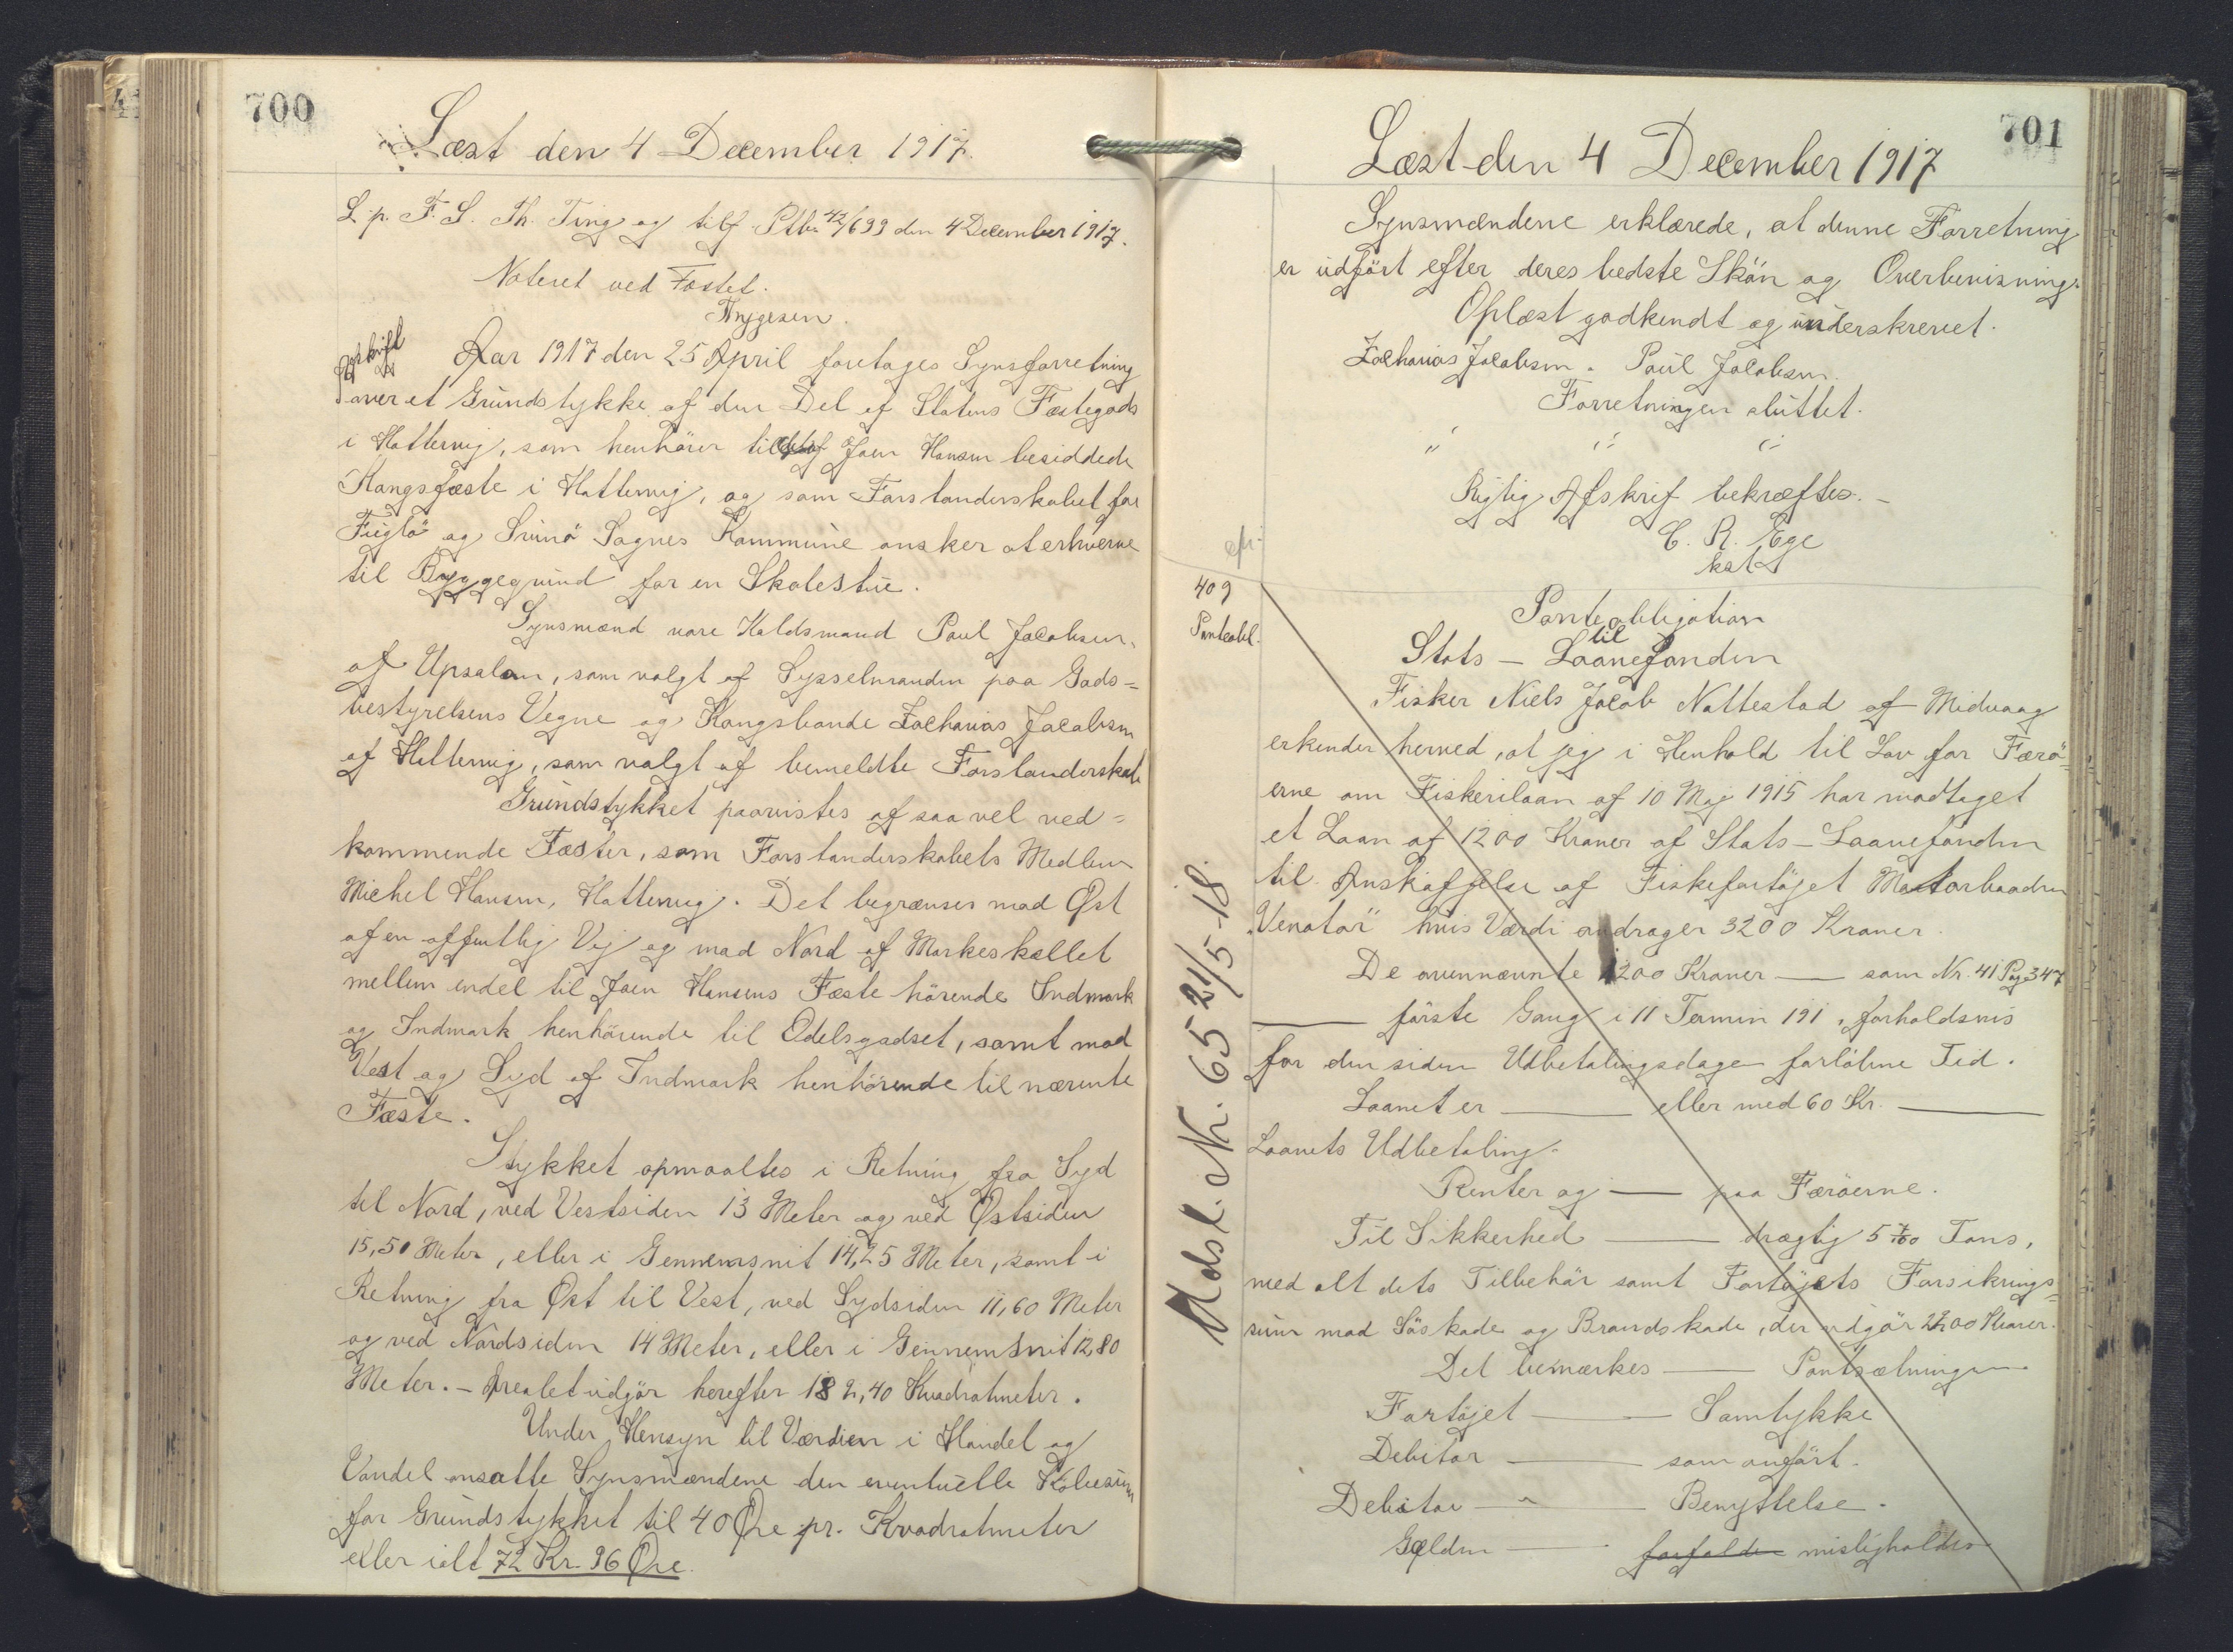 700
Læst den 4 December 1917.
L. p. F. S. Th. Ting og tilf Ptbr 42/699 den 4 December 1917.
Noteret ved Fæstet.
Trygesen.
Afskrift
Aar 1917 den 25 April foretages Synsforretning
over et Grundstykke af den Del af Statens Fæstegods
i Hattervig, som henhører til det af Joen Hansen besiddede
Kongsfæste i Hattervig, og som Forstanderskabet for
Fuglö og Svinö Sognes Kommune ønsker at erhverve
til Byggegrund for en Skolestue.
Synsmænd vare Kaldsmand Poul Jacobsen,
af Upsalan, som valgt af Sysselmanden paa Gods=
bestyrelsens Vegne og Kongsbonde Zacharias Jacobsen
af Hattervig, som valgt af bemeldte Forstanderskab
Grundstykket paavistes af saa vel ved=
kommende Fæster, som Forstanderskabets Medlem
Michel Hansen, Hattervig. Det begrænses mod Øst
af en offentlig Vej og mod Nord af Markeskellet
mellem endel til Joen Hansens Fæste hörende Indmark
og Indmark henhörende til Odelsgodset, samt mod
Vest og Syd af Indmark henhörende til nævnte
Fæste.
Stykket opmaaltes i Retning fra Syd
til Nord, ved Vestsiden 13 Meter og ved Østsiden
15,50 Meter, eller i Gennemsnit 14,25 Meter, samt i
Retning fra Øst til Vest, ved Sydsiden 11,60 Meter
og ved Nordsiden 14 Meter, eller i Gennemsnit 12,80
Meter. - Arealet udgör herefter 182,40 Kvadratmeter.
Under Hensyn til Værdien i Handel og
Vandel ansatte Synsmændene den eventuelle Köbesum
for Grundstykket til 40 Øre pr. Kvadratmeter
eller ialt 72 Kr. 96 Øre.
701
Læst den 4 December 1917
Synsmændene erklærede, at denne Forretning
er udfört efter deres bedste Skön og Overbevisning.
Oplæst godkendt og underskrevet.
Zacharias Jacobsen. Poul Jacobsen.
Forretningen sluttet.
" " "
Rigtig Afskrif bekræftes. -
C. R. Ege
kst
409
Panteobl.
Udsl. Nr. 65 21/5-18.
Panteobligation
til
Stats - Laanefonden
Fisker Niels Jacob Nattestad af Midvaag
erkender herved, at jeg i Henhold til Lov for Færö=
erne om Fiskerilaan af 10 Maj 1915 har modtaget
et Laan af 1200 Kroner af Stats-Laanefonden
til Anskaffelse af Fiskefartöjet Motorbaaden
"Venator" hvis Værdi andrager 3200 Kroner.
De ovennævnte 1200 Kroner — som Nr. 41 Pag 347
— förste Gang i 11 Termin 191 , forholdsvis
for den siden Udbetalingsdagen forlöbne Tid.
Laanet er — eller med 60 Kr. —
Laanets Udbetaling.
Renter og — paa Færöerne.
Til Sikkerhed — drægtig 5 7/100 Tons,
med alt dets Tilbehör samt Fartöjets Forsikrings=
sum mod Söskade og Brandskade, der udgör 2200 Kroner.
Det bemærkes — Pantsætningen
Fartöjet — Samtykke
Debitor — som anfört.
Debitor — Benyttelse.
Gælden — forfalder misligholdes